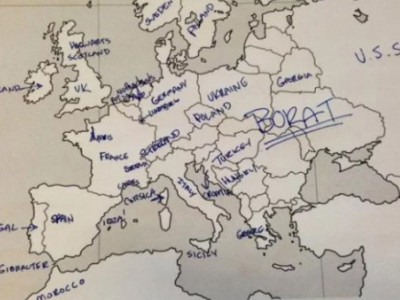 SWEDEN
POLAND
HOGWARTS
SCOTLAND
U.S.S
LAND
UK
GERMANY
UKRAINE
GEORGIA
POLAND
BORAT
PARIS
FRANCE
TURKEY
HUNGARY
CROATIA
ITALY
CORSICA
IBIZA
SPAIN
GAL
GEORGIA
SICILY
GIBRALTER
MOROCCO